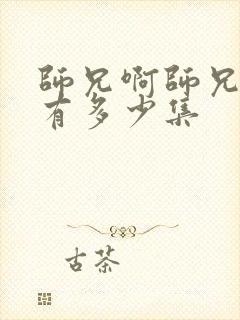 師兄啊師兄
有多少集
古茶